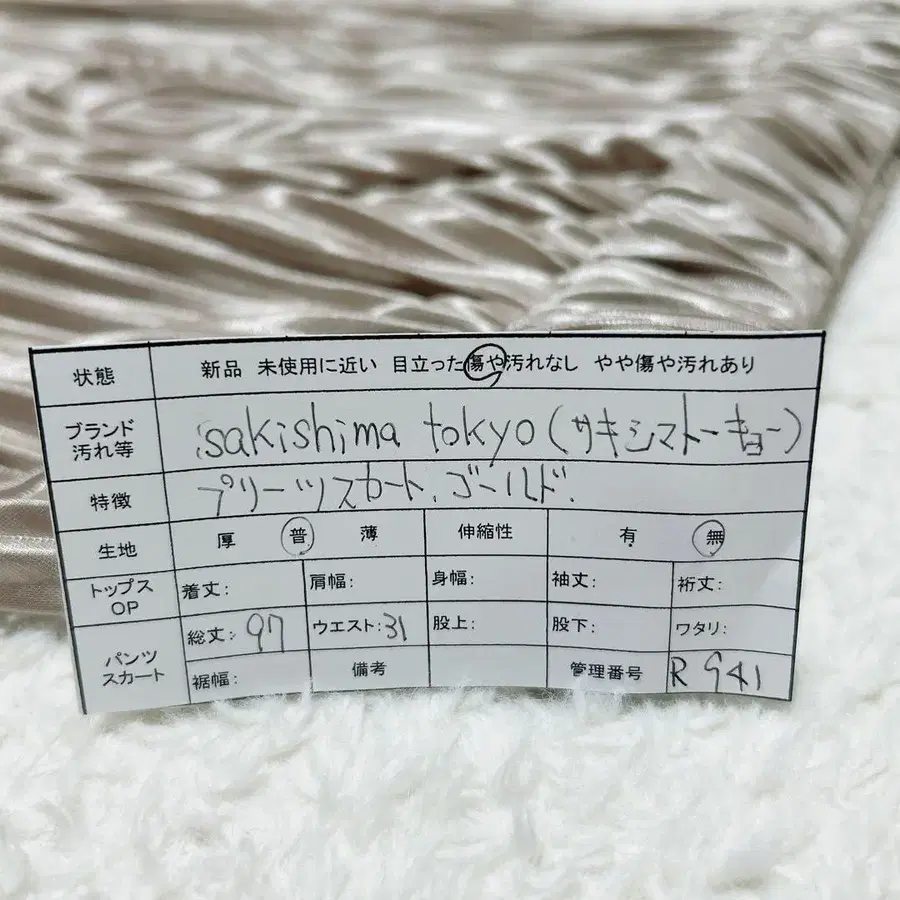 状態 新品 未使用に近い 目立った傷や汚れなし やや傷や汚れあり
ブランド 汚れ等 sakishima tokyo (サキシマトーキョー)
特徴 プリーツスカート、ゴールド、
生地 厚 普 薄 伸縮性 有 無
トップス OP 着丈: 肩幅: 身幅: 袖丈: 裄丈:
パンツ スカート 総丈: 97 ウエスト: 31 股上: 股下: ワタリ:
裾幅: 備考 管理番号 R 941